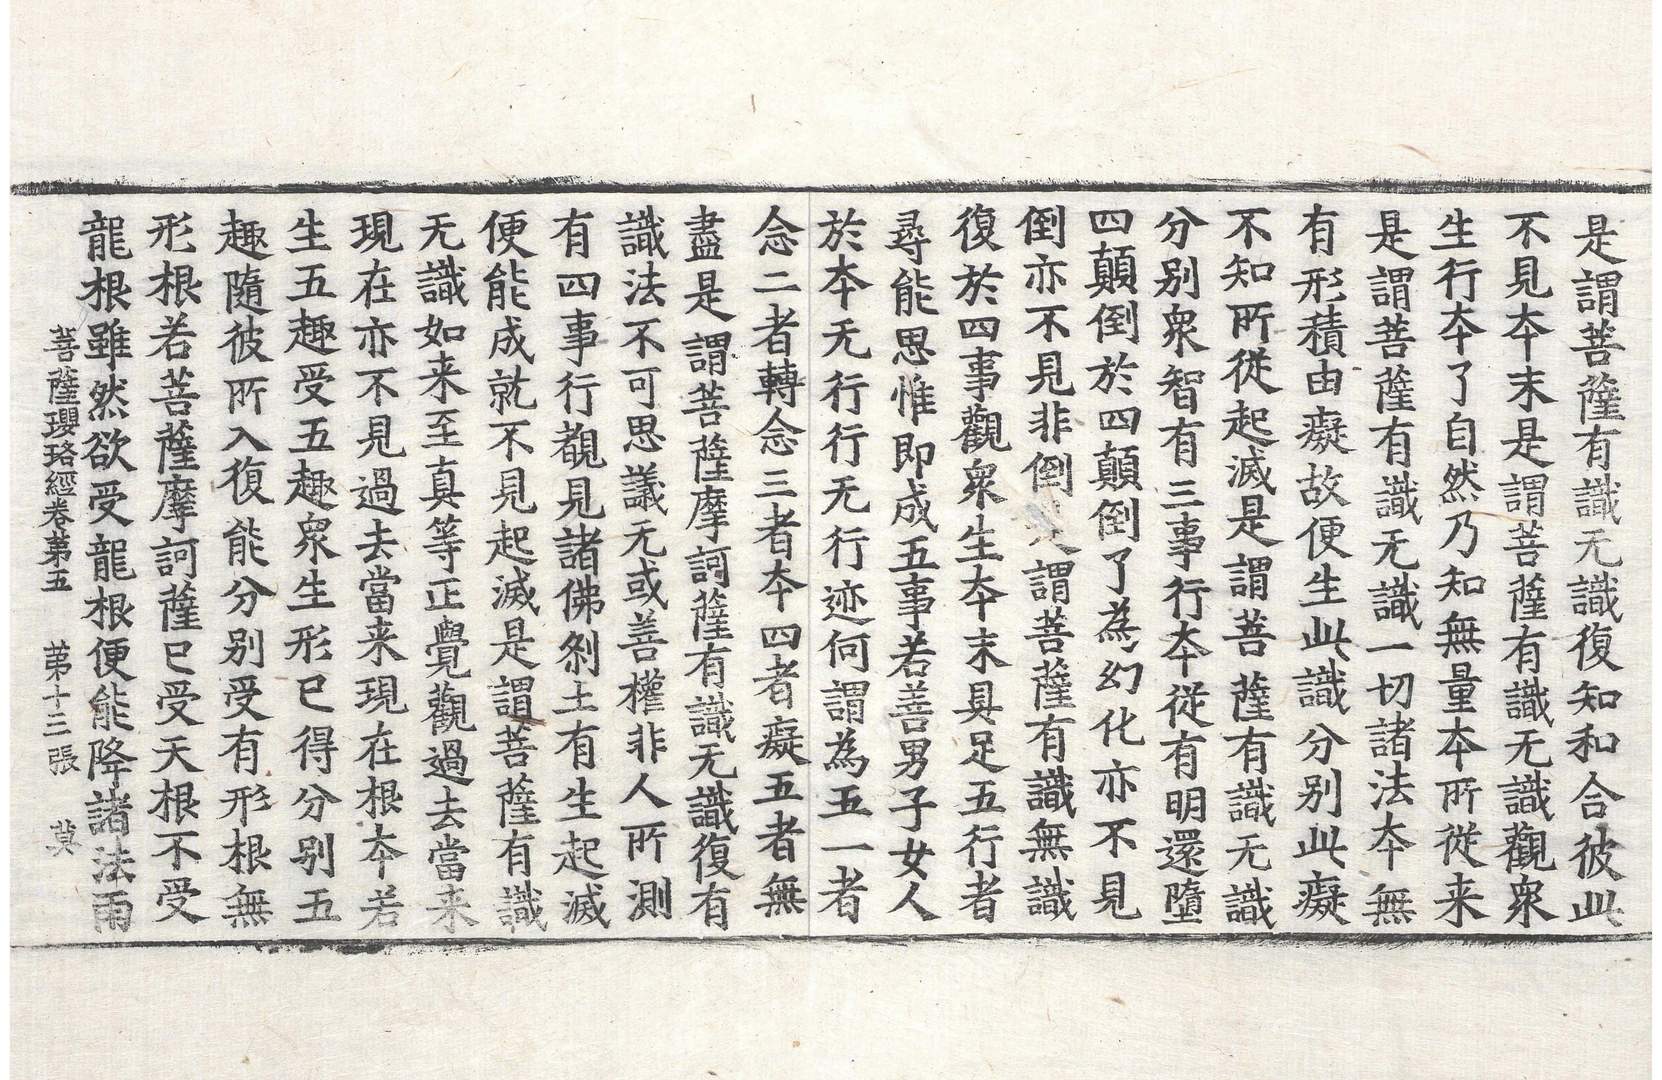 是謂菩薩有識无識復知和合彼此
不見夲末是謂菩薩有識无識觀衆
生行夲了自然乃知無量夲所從来
是謂菩薩有識无識一切諸法夲無
有形積由癡故便生此識分別此癡
不知所從起滅是謂菩薩有識无識
分別衆智有三事行夲從有明還墮
四顛倒於四顛倒了為幻化亦不見
倒亦不見非倒謂菩薩有識無識
復於四事觀衆生夲末具足五行者
尋能思惟即成五事若善男子女人
於夲无行行无行迹何謂為五一者
念二者轉念三者夲四者癡五者無
盡是謂菩薩摩訶薩有識无識復有
識法不可思議无或善權非人所測
有四事行覩見諸佛刹土有生起滅
便能成就不見起滅是謂菩薩有識
无識如来至真等正覺觀過去當来
現在亦不見過去當来現在根夲若
生五趣受五趣衆生形已得分別五
趣隨彼所入復能分別受有形根無
形根若菩薩摩訶薩已受天根不受
龍根雖然欲受龍根便能降諸法雨
菩薩瓔珞經卷第五 第十三張 莫